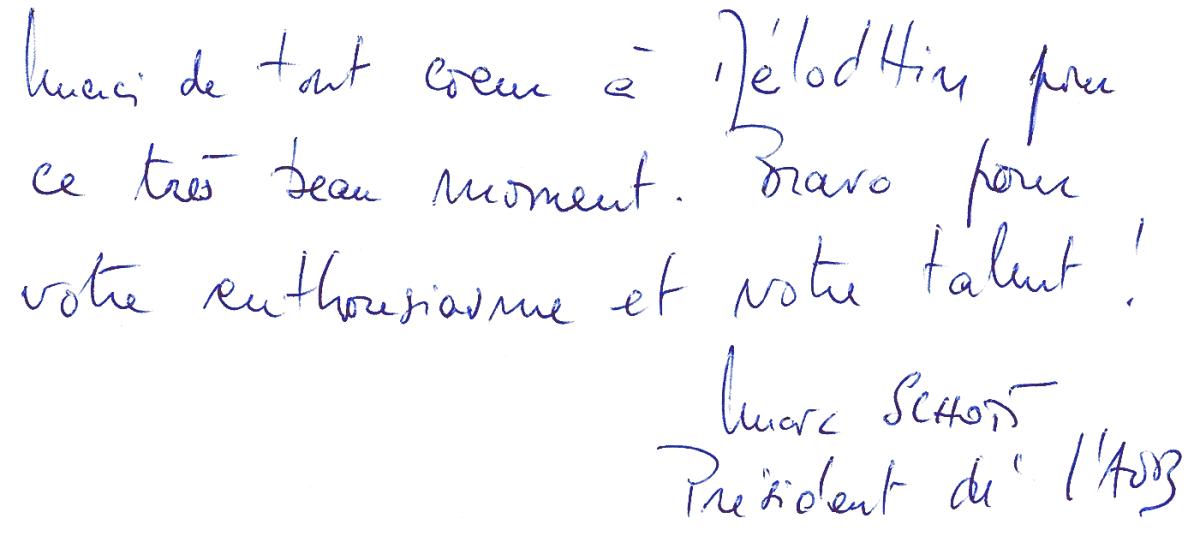 Merci de tout coeur à pour
ce très beau moment. Bravo pour
votre enthousiasme et votre talent !
Marc SCHOTT
Président de